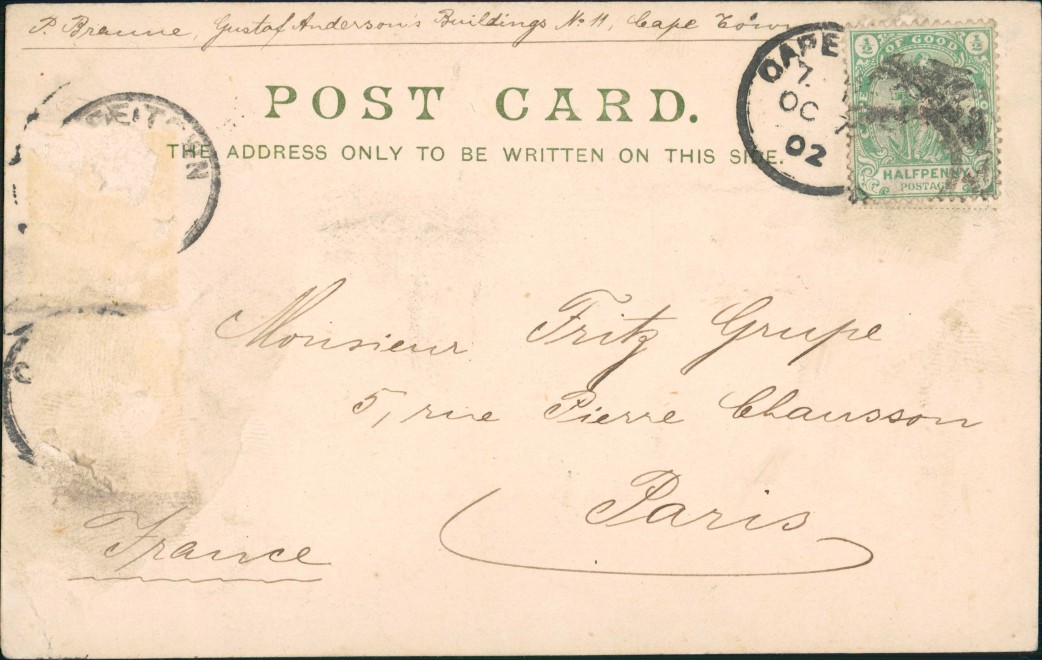 P. Braune, Gustaf Anderson's Buildings No 11, Cape Town
POST CARD.
THE ADDRESS ONLY TO BE WRITTEN ON THIS SIDE.
CAPE
7
OC 7
02
OF GOOD
½ ½
HALFPENNY
POSTAG
Monsieur Fritz Grupe
5, rue Pierre Chausson
Paris
France